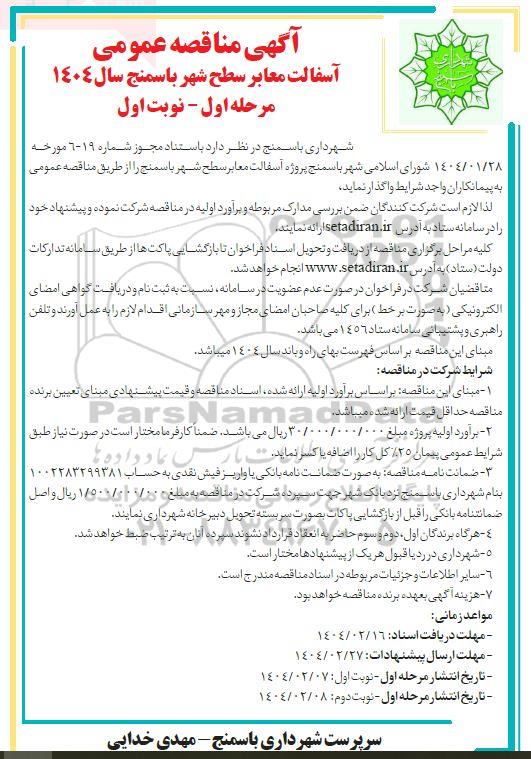 آگهی مناقصه عمومی
آسفالت معابر سطح شهر باسمنج سال ۱۴۰۴
مرحله اول - نوبت اول
شهرداری باسمنج
شهرداری باسمنج در نظر دارد باستناد مجوز شماره ۱۹-۶ مورخه
۱۴۰۴/۰۱/۲۸ شورای اسلامی شهر باسمنج پروژه آسفالت معابر سطح شهر باسمنج را از طریق مناقصه عمومی
به پیمانکاران واجد شرایط واگذار نماید،
لذا لازم است شرکت کنندگان ضمن بررسی مدارک مربوطه و برآورد اولیه در مناقصه شرکت نموده و پیشنهاد خود
را در سامانه ستاد به آدرس setadiran.ir ارائه نمایند.
کلیه مراحل برگزاری مناقصه از دریافت و تحویل اسناد فراخوان تا بازگشایی پاکت ها از طریق سامانه تدارکات
دولت (ستاد) به آدرس www.setadiran.ir انجام خواهد شد.
متقاضیان شرکت در فراخوان در صورت عدم عضویت در سامانه، نسبت به ثبت نام و دریافت گواهی امضای
الکترونیکی (به صورت بر خط) برای کلیه صاحبان امضای مجاز و مهر سازمانی اقدام لازم را به عمل آورند و تلفن
راهبری و پشتیبانی سامانه ستاد ۱۴۵۶ می باشد.
مبنای این مناقصه بر اساس فهرست بهای راه و باند سال ۱۴۰۴ میباشد.
شرایط شرکت در مناقصه:
۱-مبنای این مناقصه: بر اساس برآورد اولیه ارائه شده، اسناد مناقصه و قیمت پیشنهادی مبنای تعیین برنده
مناقصه حداقل قیمت ارائه شده میباشد.
۲-برآورد اولیه پروژه مبلغ ۳۰/۰۰۰/۰۰۰/۰۰۰ ریال می باشد. ضمناً کارفرما مختار است در صورت نیاز طبق
شرایط عمومی پیمان ۲۵٪ کل کار را اضافه یا کسر نماید.
۳-ضمانت نامه مناقصه: به صورت ضمانت نامه بانکی یا واریز فیش نقدی به حساب ۱۰۰۲۲۸۳۲۹۹۳۸۱
بنام شهرداری باسمنج نزد بانک شهر جهت سپرده شرکت در مناقصه به مبلغ ۱/۵۰۰/۰۰۰/۰۰۰ ریال و اصل
ضمانتنامه بانکی را قبل از بازگشایی پاکات بصورت سربسته تحویل دبیرخانه شهرداری نمایند.
۴-هرگاه برندگان اول، دوم و سوم حاضر به انعقاد قرارداد نشوند سپرده آنان به ترتیب ضبط خواهد شد.
۵-شهرداری در رد یا قبول هر یک از پیشنهادها مختار است.
۶-سایر اطلاعات و جزئیات مربوطه در اسناد مناقصه مندرج است.
۷-هزینه آگهی بعهده برنده مناقصه خواهد بود.
مواعد زمانی:
- مهلت دریافت اسناد: ۱۴۰۴/۰۲/۱۶
- مهلت ارسال پیشنهادات: ۱۴۰۴/۰۲/۲۷
- تاریخ انتشار مرحله اول -نوبت اول: ۱۴۰۴/۰۲/۰۷
- تاریخ انتشار مرحله اول -نوبت دوم: ۱۴۰۴/۰۲/۰۸
سرپرست شهرداری باسمنج – مهدی خدایی
ParsNamadData